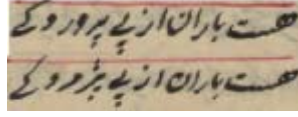 هست باران از پے پروردگے
هست باران از پے پژمردگے